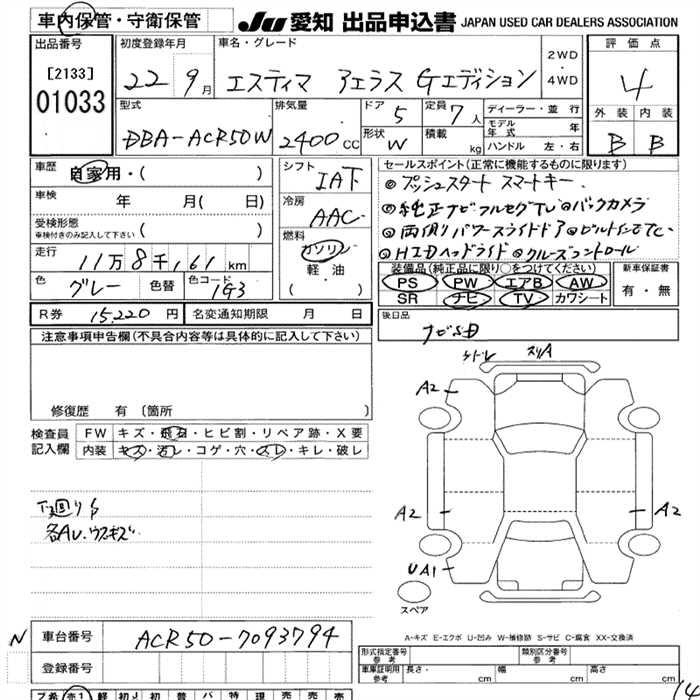 車内保管・守衛保管
JU 愛知 出品申込書 JAPAN USED CAR DEALERS ASSOCIATION
出品番号
[2133]
01033
初度登録年月
22 9月
車名・グレード
エスティマ アエラス Gエディション
2WD
・
4WD
評価点
4
外装 内装
B B
型式
DBA-ACR50W
排気量
2400CC
ドア 5
形状 W
定員 7人
積載 kg
ディーラー・並 行
モデル年式 年
ハンドル 左・右
車歴 自家用・( )
車検 年 月( 日)
受検形態
車検付きのみ記入して下さい ( )
走行 11万8千,161km
色 グレー 色替 色コード 1G3
シフト IA下
冷房 AAC
燃料 ガソリン
軽油
( )
セールスポイント(正常に機能するものに限ります)
◎プッシュスタート スマートキー
◎純正ナビフルセグTV◎バックカメラ
◎両側パワースライドドア◎ビルトインETC
◎HIDヘッドライド◎クルーズコントロール
装備品(純正品に限り○をつけてください)
PS PW エアB AW
SR ナビ TV カワシート
新車保証書
有・無
R券 15,220円 名変通知期限 月 日
後日品
ナビSD
注意事項申告欄(不具合内容等は具体的に記入して下さい)
修復歴 有 〔箇所 〕
検査員記入欄
FW キズ・飛石・ヒビ割・リペア跡・X要
内装 キズ・汚レ・コゲ・穴・スレ・キレ・破レ
下廻りS
各AU.ウスキズ
スリA
A2
A2
A2
UA1
スペア
A-キズ E-エクボ U-凹み W-補修跡 S-サビ C-腐食 XX-交換済
N
車台番号 ACR50-7093794
登録番号
形式指定番号 参考
類別区分番号 参考
車庫証明用 参考 長さ・ cm 幅 cm 高さ cm